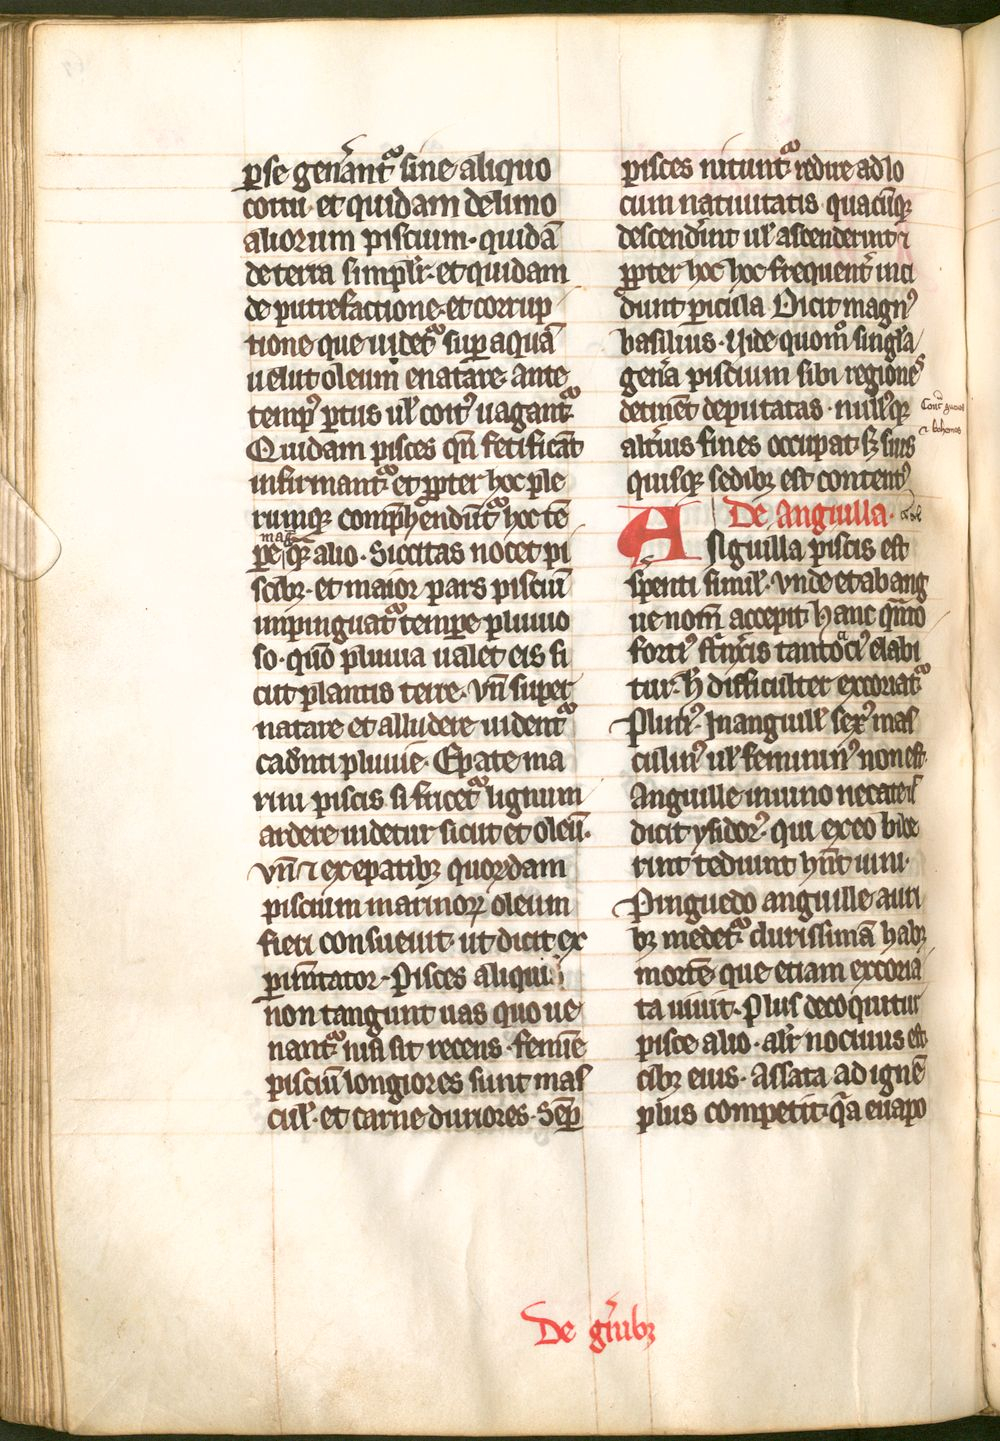 ꝑse gen̄antᷣ sine aliquo
coitu et quidam de limo
aliorum piscium· quidā
de terra simplr̄· et quidam
de putrefactione· et corrup
tione que uidetᷣ suꝑ aquā
uelut oleum enatare· ante
tempꝰ ꝑtus ul̄ coitꝰ uagantᷣ
Quidam pisces qn̄ fetificāt
infirmantᷣ et ꝓpter hoc ple
rumqꝫ comp̄hendūtᷣ hoc tē
pe magꝭ qͣꝫ alio· Siccitas nocet pi
scibꝫ· et maior pars pisciū
impinguatᷣ tempe pluuio
so· quō pluuia ualet eis si
cut plantis terre· vn̄ super
natare et alludere uidentᷣ
cadn̄ti pluuie· Epate ma
rini piscis si fricetᷣ lignum
ardere uidetur sicut et oleū·
vn̄ ⁊ ex epatibꝫ quoꝝdam
piscium marinoꝝ oleum
fieri consueuit· ut dicit ex
ꝑim̄tator· Pisces aliqui
non tangunt uas quo ue
nantᷣ nisi sit recens· femīe
pisciū longiores sunt mas
cul̄· et carne duriores· Semꝑ
pisces nituntᷣ redire ad lo
cum natiuitatis quacūqꝫ
descendīnt ul̄ ascenderint ⁊
ꝓpter hoc hoc frequentᷣ inci
dunt ꝑicula Dicit magnꝰ
basilius· Uide quomͦ singl̄a
gen̄a piscium sibi regiones
detinēt deputatas· nullꝰqꝫ
altīus fines occupat sꝫ suis
quisqꝫ sedibꝫ est contentꝰ
De Anguilla·
Anguilla piscis est
sp̄enti simil̄· vnde et ab ang
ue nom̄ accepit hanc qͣnto
fortiꝰ stx̄ris tanto ciꝰ elabi
tur· h̄ difficulter excoriatᷣ
Pliniꝰ· In anguill̄ sexꝰ mas
culinꝰ ul̄ femininꝰ non est·
Anguille in uino necate ul̄
dicit ysidorꝰ· qui ex eo bibe
rint tediunt hn̄t uini·
Pinguedo anguille auri
bꝫ medetᷣ durissimā habꝫ
mortē que etiam excoria
ta uiuit· Plus decoquitur
pisce alio· alr̄ nociuus est
cibꝫ eius· Assata ad ignē
plus competit· qͣa euapo
De gn̄ibꝫ